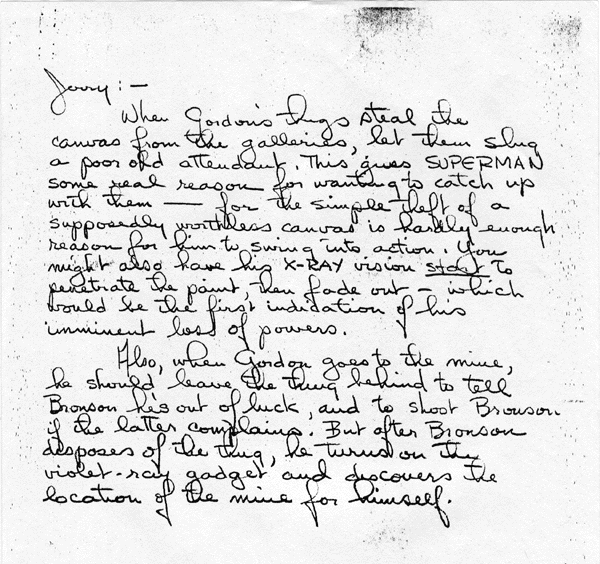 Jerry:-
When Gordon's thugs steal the
canvas from the galleries, let them slug
a poor old attendant. This gives SUPERMAN
some real reason for wanting to catch up
with them — for the simple theft of a
supposedly worthless canvas is hardly enough
reason for him to swing into action. You
might also have his X-RAY vision start to
penetrate the paint, then fade out - which
would be the first indication of his
imminent loss of powers.
Also, when Gordon goes to the mine,
he should leave the thug behind to tell
Bronson he's out of luck, and to shoot Bronson
if the latter complains. But after Bronson
disposes of the thug, he turns on the
violet-ray gadget and discovers the
location of the mine for himself.